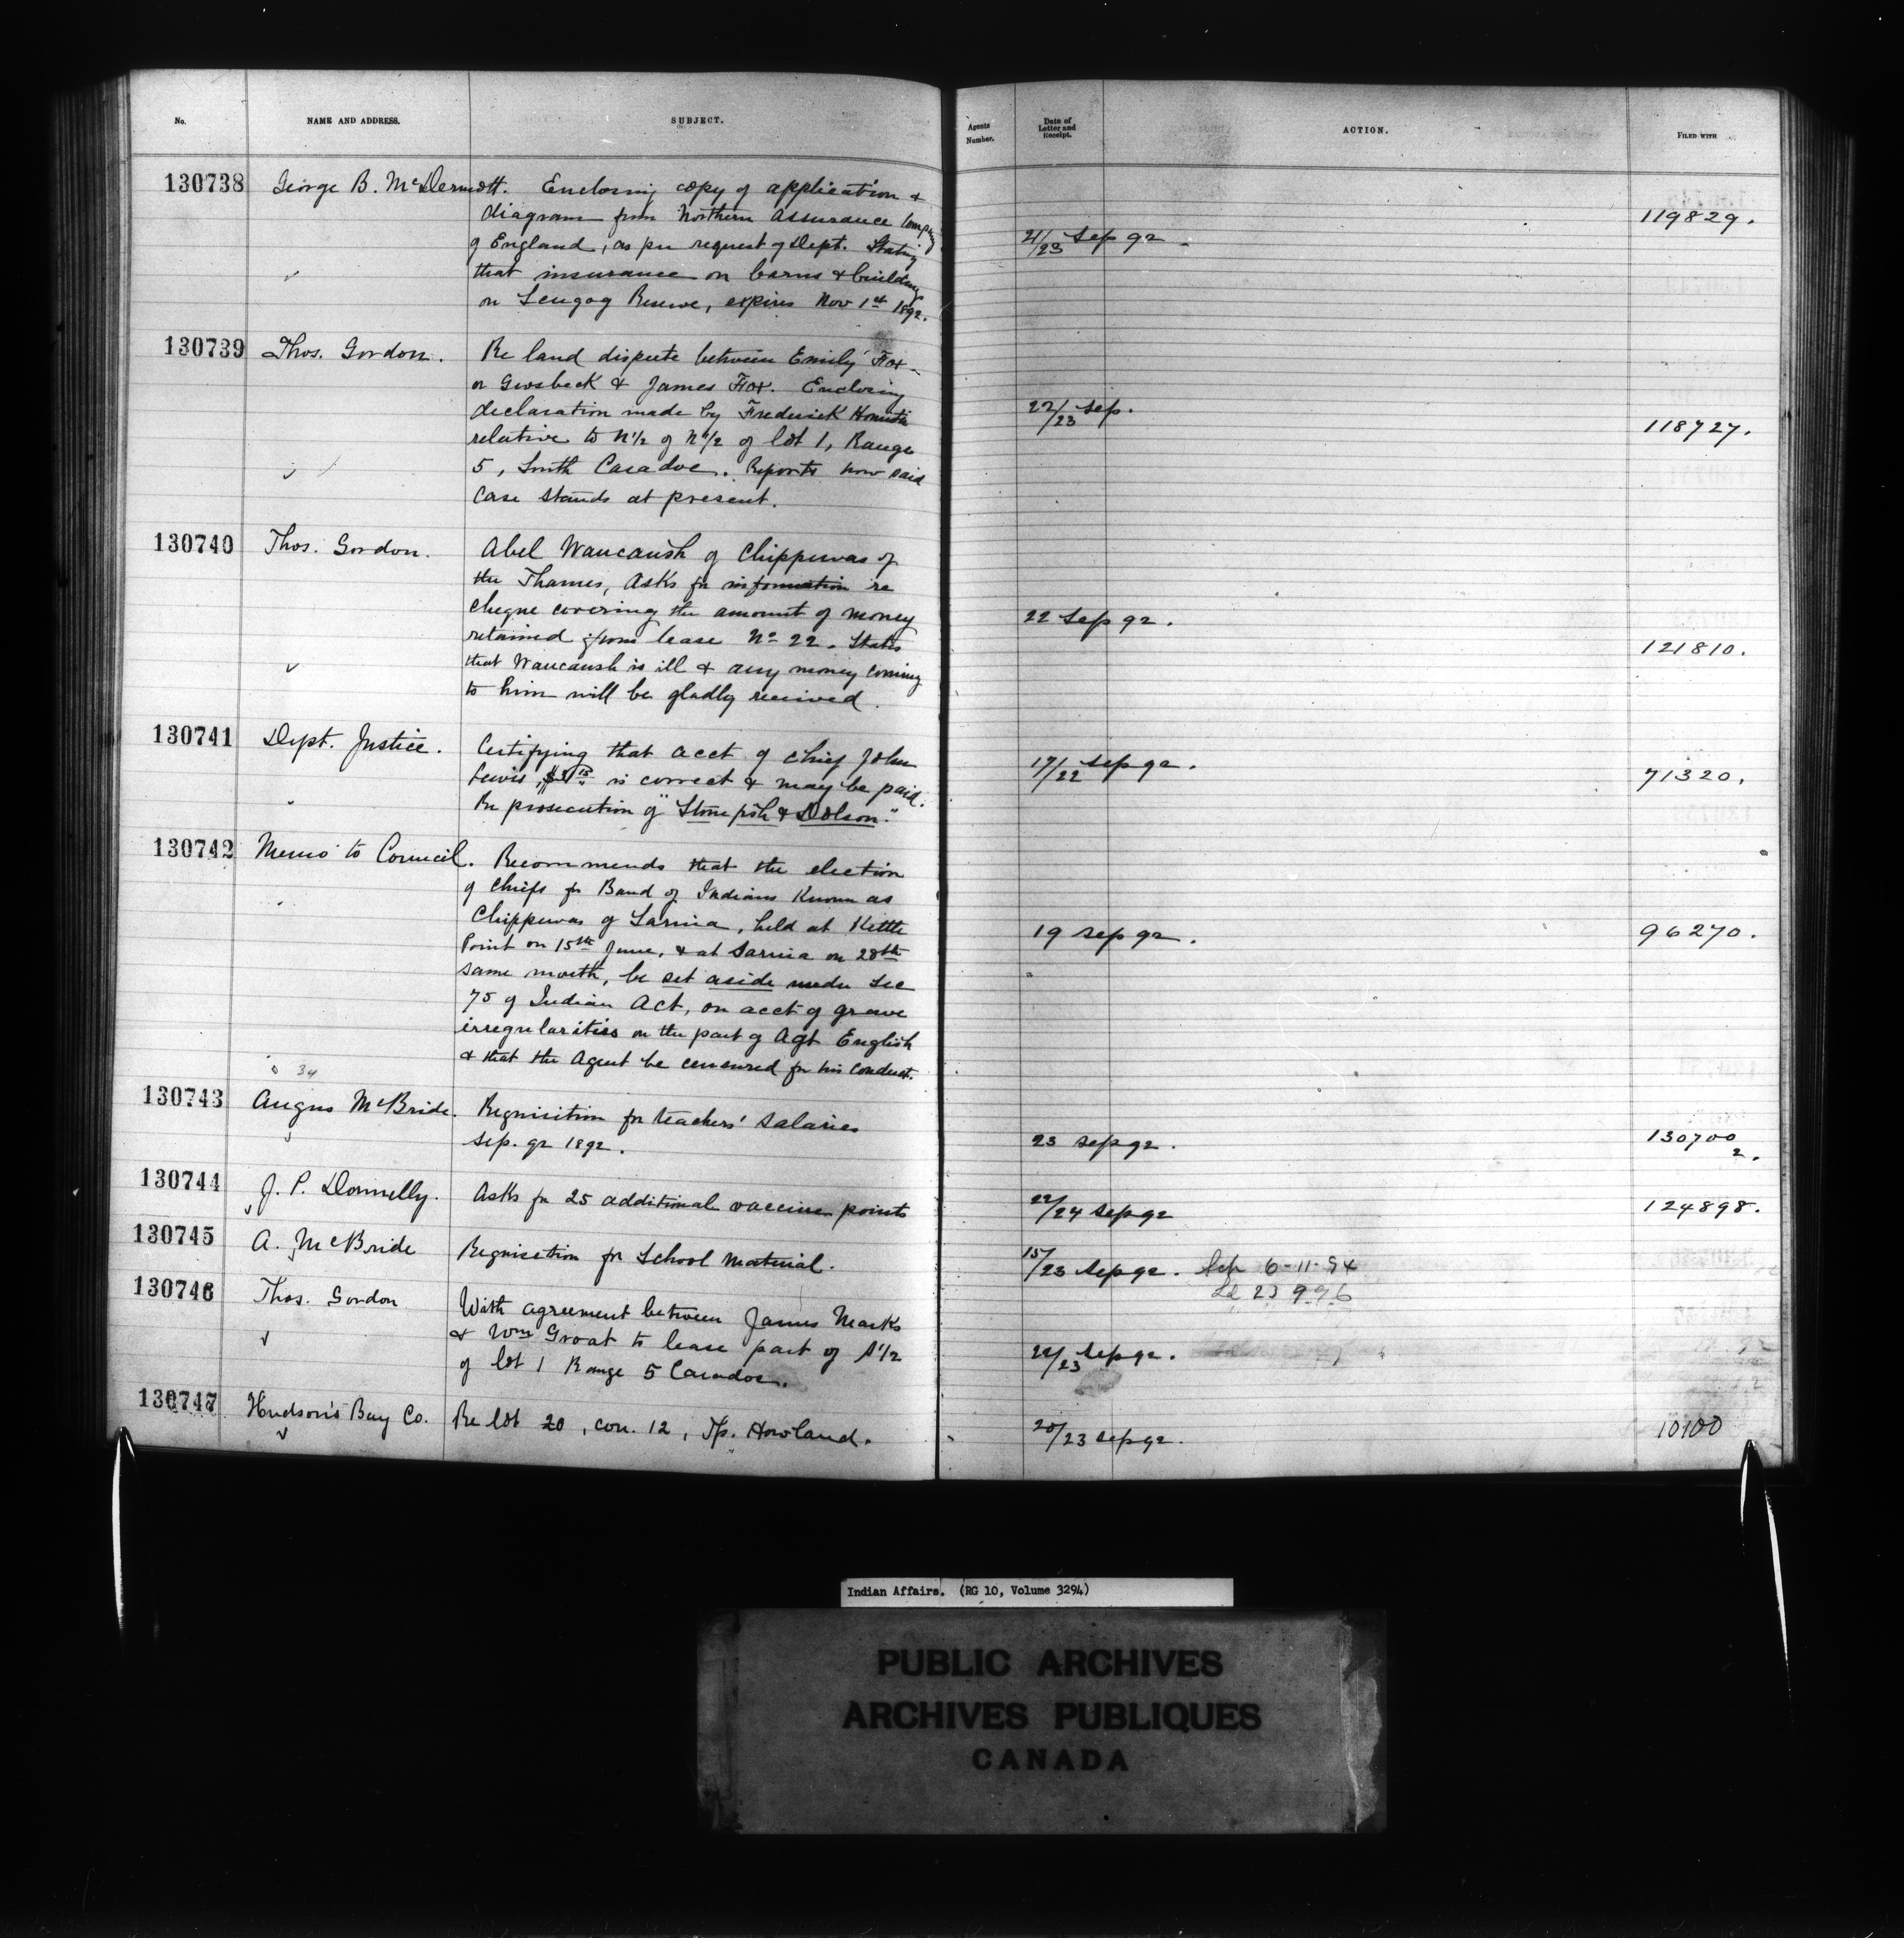 No. NAME AND ADDRESS. SUBJECT. Agents Number. Date of Letter and Receipt. ACTION. FILED WITH
130738 George B. McDermott. Enclosing copy of application &
diagram from Northern Assurance Company
of England, as per request of Dept. Stating
that insurance on barns & buildings
on Scugog Reserve, expires Nov 1st 1892.
21/23 Sep 92. 119829.
130739 Thos. Gordon. Re land dispute between Emily Fox
or Grosbeck & James Fox. Enclosing
declaration made by Frederick
relative to N½ of N½ of lot 1, Range
5, South Caradoc. Reports how said
case stands at present.
22/23 Sep. 118727.
130740 Thos. Gordon. Abel Waucaush of Chippewas of
the Thames, asks for information re
cheque covering the amount of money
retained from lease No 22. States
that Waucaush is ill & any money coming
to him will be gladly received.
22 Sep 92. 121810.
130741 Dept. Justice. Certifying that acct of Chief John
Lewis, is correct & may be paid.
Re prosecution of "Stonefish & Dolson."
17/22 Sep 92. 71320.
130742 Memo to Council. Recommends that the election
of Chiefs for Band of Indians Known as
Chippewas of Sarnia, held at Kettle
Point on 15th June, & at Sarnia on 28th
same month, be set aside under Sec
75 of Indian Act, on acct of grave
irregularities on the part of Agt English
& that the Agent be censured for his conduct.
19 Sep 92. 96270.
34
130743 Angus McBride. Requisition for teachers' salaries
Sep. qr 1892.
23 Sep 92. 130700
2.
130744 J. P. Donnelly. Asks for 25 additional vaccine points
22/24 Sep 92 124898.
130745 A. McBride Requisition for School Material.
15/23 Sep 92. Sep 6-11-94
Ld 23996
130746 Thos. Gordon With agreement between James Marks
& Wm Groat to lease part of S½
of lot 1 Range 5 Caradoc.
22/23 Sep 92.
130747 Hudson's Bay Co. Re lot 20, con. 12, Tp. Howland.
20/23 Sep 92. 10100
Indian Affairs. (RG 10, Volume 3294)
PUBLIC ARCHIVES
ARCHIVES PUBLIQUES
CANADA